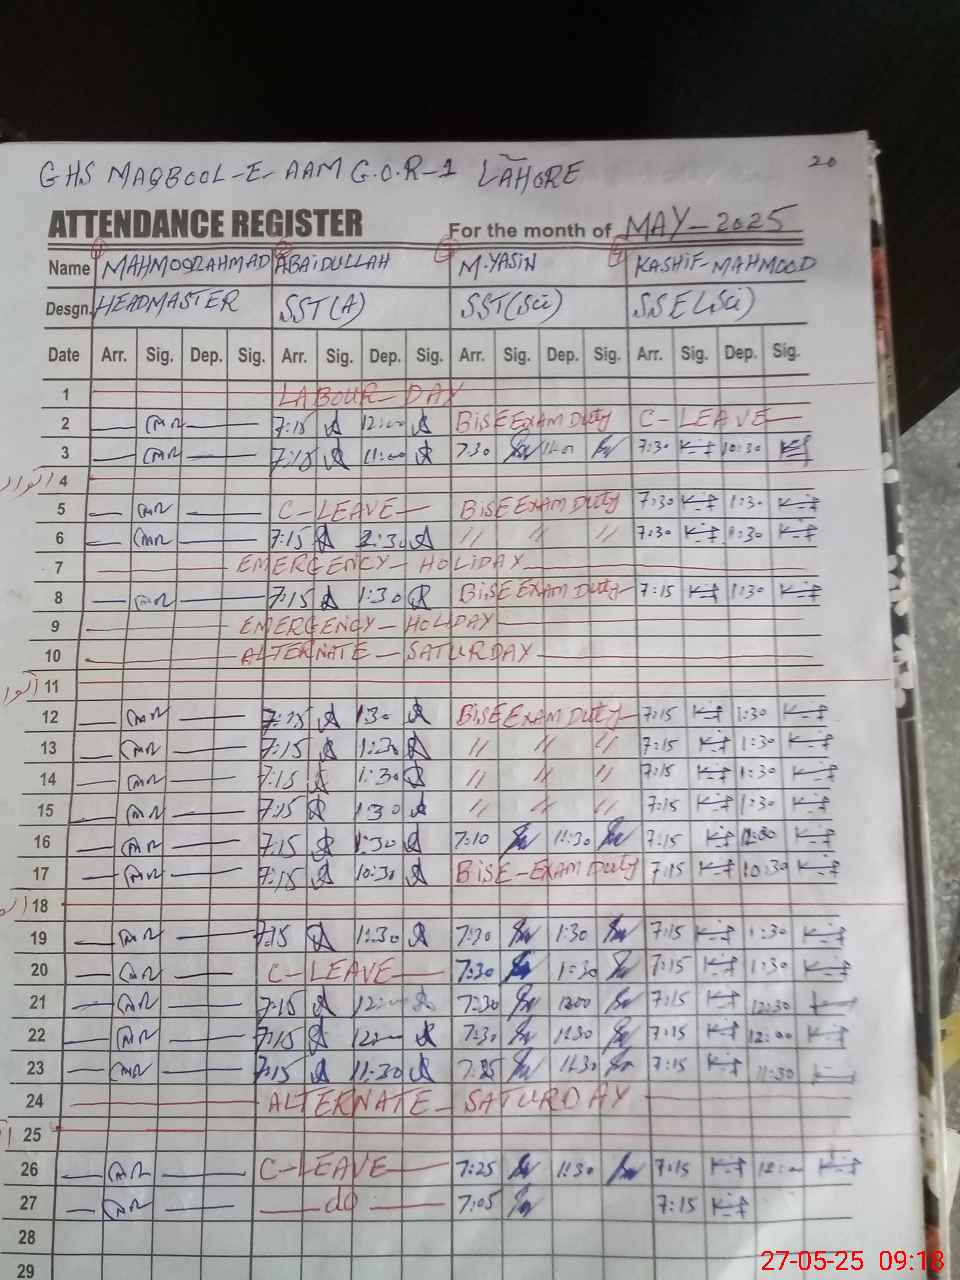 20
GHS MAQBOOL-E-AAM G.O.R-1 LAHORE
ATTENDANCE REGISTER For the month of MAY-2025
1 2 3 4
Name MAHMOODAHMAD ABAIDULLAH M.YASIN KASHIF-MAHMOOD
Desgn. HEADMASTER SST(A) SST(Sci) SSE(Sci)
Date Arr. Sig. Dep. Sig. Arr. Sig. Dep. Sig. Arr. Sig. Dep. Sig. Arr. Sig. Dep. Sig.
1 LABOUR-DAY
2 7:15 12:00 BISE EXAM Duty C-LEAVE
3 7:15 11:00 7:30 11:00 7:30 10:30
اتوار 4
5 C-LEAVE BISE EXAM Duty 7:30 1:30
6 7:15 1:30 // // // 7:30 1:30
7 EMERGENCY-HOLIDAY
8 7:15 1:30 BISE EXAM Duty 7:15 1:30
9 EMERGENCY-HOLIDAY
10 ALTERNATE-SATURDAY
11
12 7:15 1:30 BISE EXAM Duty 7:15 1:30
13 7:15 1:30 // // // 7:15 1:30
14 7:15 1:30 // // // 7:15 1:30
15 7:15 1:30 // // // 7:15 1:30
16 7:15 1:30 7:10 11:30 7:15
17 7:15 10:30 BISE-EXAM Duty 7:15 10:30
18
19 7:15 1:30 7:30 1:30 7:15 1:30
20 C-LEAVE 7:30 1:30 7:15 1:30
21 7:15 12:00 7:30 12:00 7:15 12:30
22 7:15 12:00 7:30 11:30 7:15 12:00
23 7:15 11:30 7:25 11:30 7:15 11:30
24 ALTERNATE-SATURDAY
25
26 C-LEAVE 7:25 1:30 7:15 12:00
27 do 7:05 7:15
28
29
27-05-25 09:18